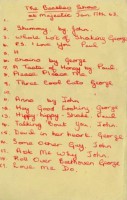 The Beatles Show
at Majestic Jan 17th 63
1 Shimmy by John
2 Whole lot of Shaking George
3 P.S I Love You Paul
4
5 by George
6 A Taste of Honey by Paul
7 Please Please Me
8 Three Cool Cats George
9
10 Anna by John
11 Hey Good Looking George
12 Hippy Hippy Shake Paul
13 Talking Bout You John
14 Devil in her Heart George
15 Some Other Guy John
16 Ask Me Why John
17 Roll Over Beethoven George
Love Me Do